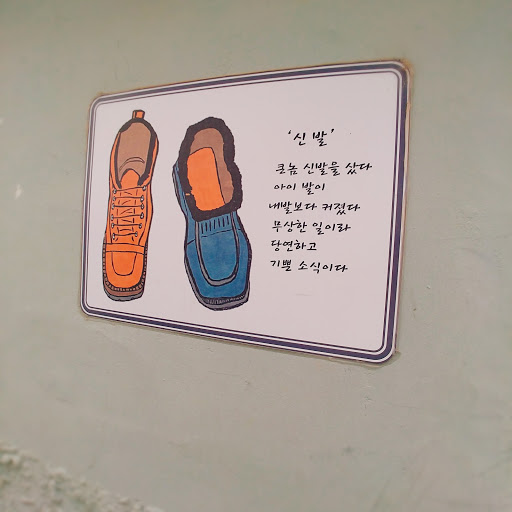 ‘신발’
큰놈 신발을 샀다
아이 발이
내발보다 커졌다
무상한 일이라
당연하고
기쁠 소식이다